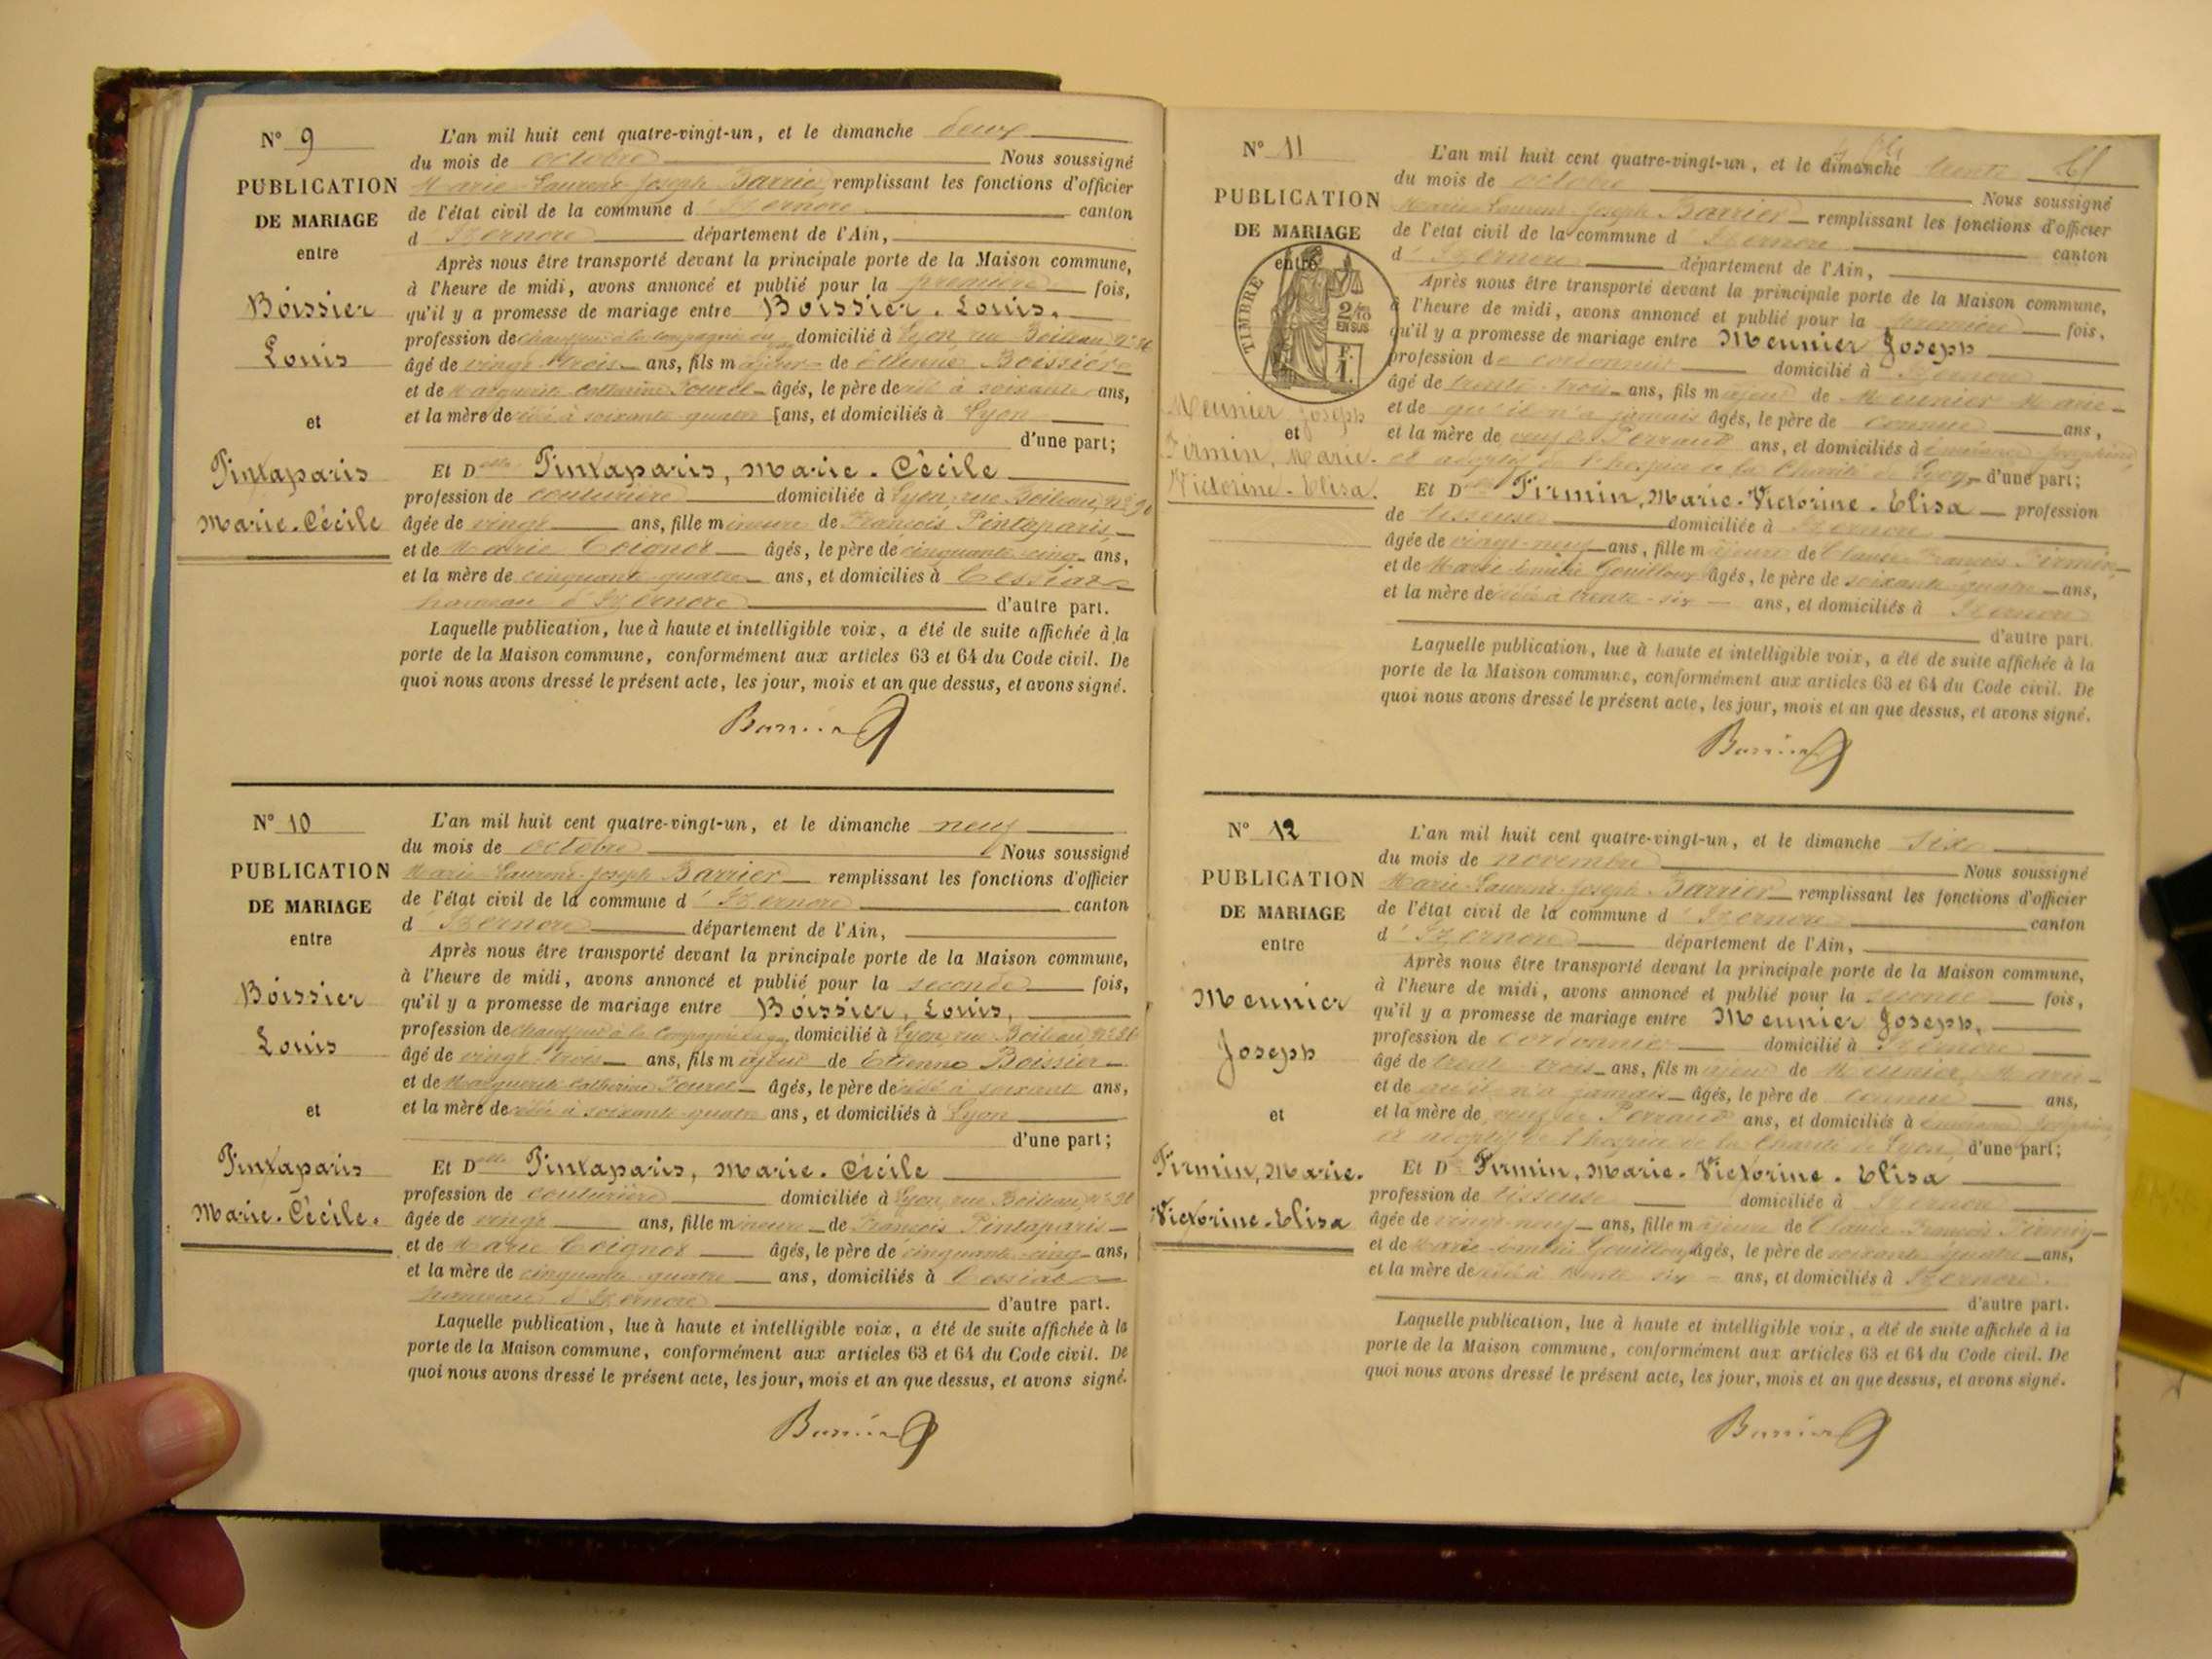 N° 9
PUBLICATION
DE MARIAGE
entre
Boissier
Louis
et
Pintaparis
Marie-Cécile
L'an mil huit cent quatre-vingt-un, et le dimanche deux
du mois de octobre Nous soussigné
Marie-Laurent-Joseph Barrier remplissant les fonctions d'officier
de l'état civil de la commune d'Izernore canton
d'Izernore département de l'Ain,
Après nous être transporté devant la principale porte de la Maison commune,
à l'heure de midi, avons annoncé et publié pour la première fois,
qu'il y a promesse de mariage entre Boissier, Louis,
profession de chauffeur à la compagnie du domicilié à Lyon, rue Boileau, n°
âgé de vingt-trois ans, fils majeur de Etienne Boissier
et de Marguerite Catherine âgés, le père décédé à soixante ans,
et la mère décédée à soixante-quatre [ans, et domiciliés à Lyon
d'une part;
Et Delle Pintaparis, Marie-Cécile
profession de couturière domiciliée à Lyon, rue Boileau, n°
âgée de vingt ans, fille mineure de François Pintaparis
et de Marie Coignet âgés, le père de cinquante-cinq ans,
et la mère de cinquante-quatre ans, et domiciliés à Cessiat
hameau d'Izernore d'autre part.
Laquelle publication, lue à haute et intelligible voix, a été de suite affichée à la
porte de la Maison commune, conformément aux articles 63 et 64 du Code civil. De
quoi nous avons dressé le présent acte, les jour, mois et an que dessus, et avons signé.
Barrier
N° 10
PUBLICATION
DE MARIAGE
entre
Boissier
Louis
et
Pintaparis
Marie-Cécile.
L'an mil huit cent quatre-vingt-un, et le dimanche neuf
du mois de octobre Nous soussigné
Marie-Laurent-Joseph Barrier remplissant les fonctions d'officier
de l'état civil de la commune d'Izernore canton
d'Izernore département de l'Ain,
Après nous être transporté devant la principale porte de la Maison commune,
à l'heure de midi, avons annoncé et publié pour la seconde fois,
qu'il y a promesse de mariage entre Boissier, Louis,
profession de chauffeur à la Compagnie du gaz domicilié à Lyon, rue Boileau, n°
âgé de vingt-trois ans, fils majeur de Etienne Boissier
et de Marguerite Catherine âgés, le père décédé à soixante ans,
et la mère décédée à soixante-quatre ans, et domiciliés à Lyon
d'une part;
Et Delle Pintaparis, Marie-Cécile
profession de couturière domiciliée à Lyon, rue Boileau, n°
âgée de vingt ans, fille mineure de François Pintaparis
et de Marie Coignet âgés, le père de cinquante-cinq ans,
et la mère de cinquante-quatre ans, domiciliés à Cessiat
hameau d'Izernore d'autre part.
Laquelle publication, lue à haute et intelligible voix, a été de suite affichée à la
porte de la Maison commune, conformément aux articles 63 et 64 du Code civil. De
quoi nous avons dressé le présent acte, les jour, mois et an que dessus, et avons signé.
Barrier
N° 11
PUBLICATION
DE MARIAGE
entre
TIMBRE
2/10
EN SUS
F.
1.
Meunier Joseph
et
Firmin, Marie-
Victorine-Elisa.
L'an mil huit cent quatre-vingt-un, et le dimanche trente
du mois de octobre Nous soussigné
Marie-Laurent-Joseph Barrier remplissant les fonctions d'officier
de l'état civil de la commune d'Izernore canton
d'Izernore département de l'Ain,
Après nous être transporté devant la principale porte de la Maison commune,
à l'heure de midi, avons annoncé et publié pour la première fois,
qu'il y a promesse de mariage entre Meunier Joseph
profession de cordonnier domicilié à Izernore
âgé de trente-trois ans, fils majeur de Meunier Marie
et de qu'il n'a jamais âgés, le père de connue ans,
et la mère de veuf de Perraud ans, et domiciliés à
et adoptif de l'hospice de la Charité de Lyon, d'une part;
Et Delle Firmin, Marie-Victorine-Elisa profession
de tisseuse domiciliée à Izernore
âgée de vingt-neuf ans, fille majeure de Claude François Firmin
et de Marie Gouilloux âgés, le père de soixante-quatre ans,
et la mère décédée à trente-six ans, et domiciliés à Izernore
d'autre part.
Laquelle publication, lue à haute et intelligible voix, a été de suite affichée à la
porte de la Maison commune, conformément aux articles 63 et 64 du Code civil. De
quoi nous avons dressé le présent acte, les jour, mois et an que dessus, et avons signé.
Barrier
N° 12
PUBLICATION
DE MARIAGE
entre
Meunier
Joseph
et
Firmin, Marie.
Victorine-Elisa
L'an mil huit cent quatre-vingt-un, et le dimanche six
du mois de novembre Nous soussigné
Marie-Laurent-Joseph Barrier remplissant les fonctions d'officier
de l'état civil de la commune d'Izernore canton
d'Izernore département de l'Ain,
Après nous être transporté devant la principale porte de la Maison commune,
à l'heure de midi, avons annoncé et publié pour la seconde fois,
qu'il y a promesse de mariage entre Meunier Joseph,
profession de cordonnier domicilié à Izernore
âgé de trente-trois ans, fils majeur de Meunier, Marie
et de qu'il n'a jamais âgés, le père de connue ans,
et la mère de veuf de Perraud ans, et domiciliés à
et adoptif de l'hospice de la Charité de Lyon, d'une part;
Et D Firmin, Marie-Victorine-Elisa
profession de tisseuse domiciliée à Izernore
âgée de vingt-neuf ans, fille majeure de Claude François Firmin
et de Marie Gouilloux âgés, le père de soixante-quatre ans,
et la mère décédée à trente-six ans, et domiciliés à Izernore.
d'autre part.
Laquelle publication, lue à haute et intelligible voix, a été de suite affichée à la
porte de la Maison commune, conformément aux articles 63 et 64 du Code civil. De
quoi nous avons dressé le présent acte, les jour, mois et an que dessus, et avons signé.
Barrier